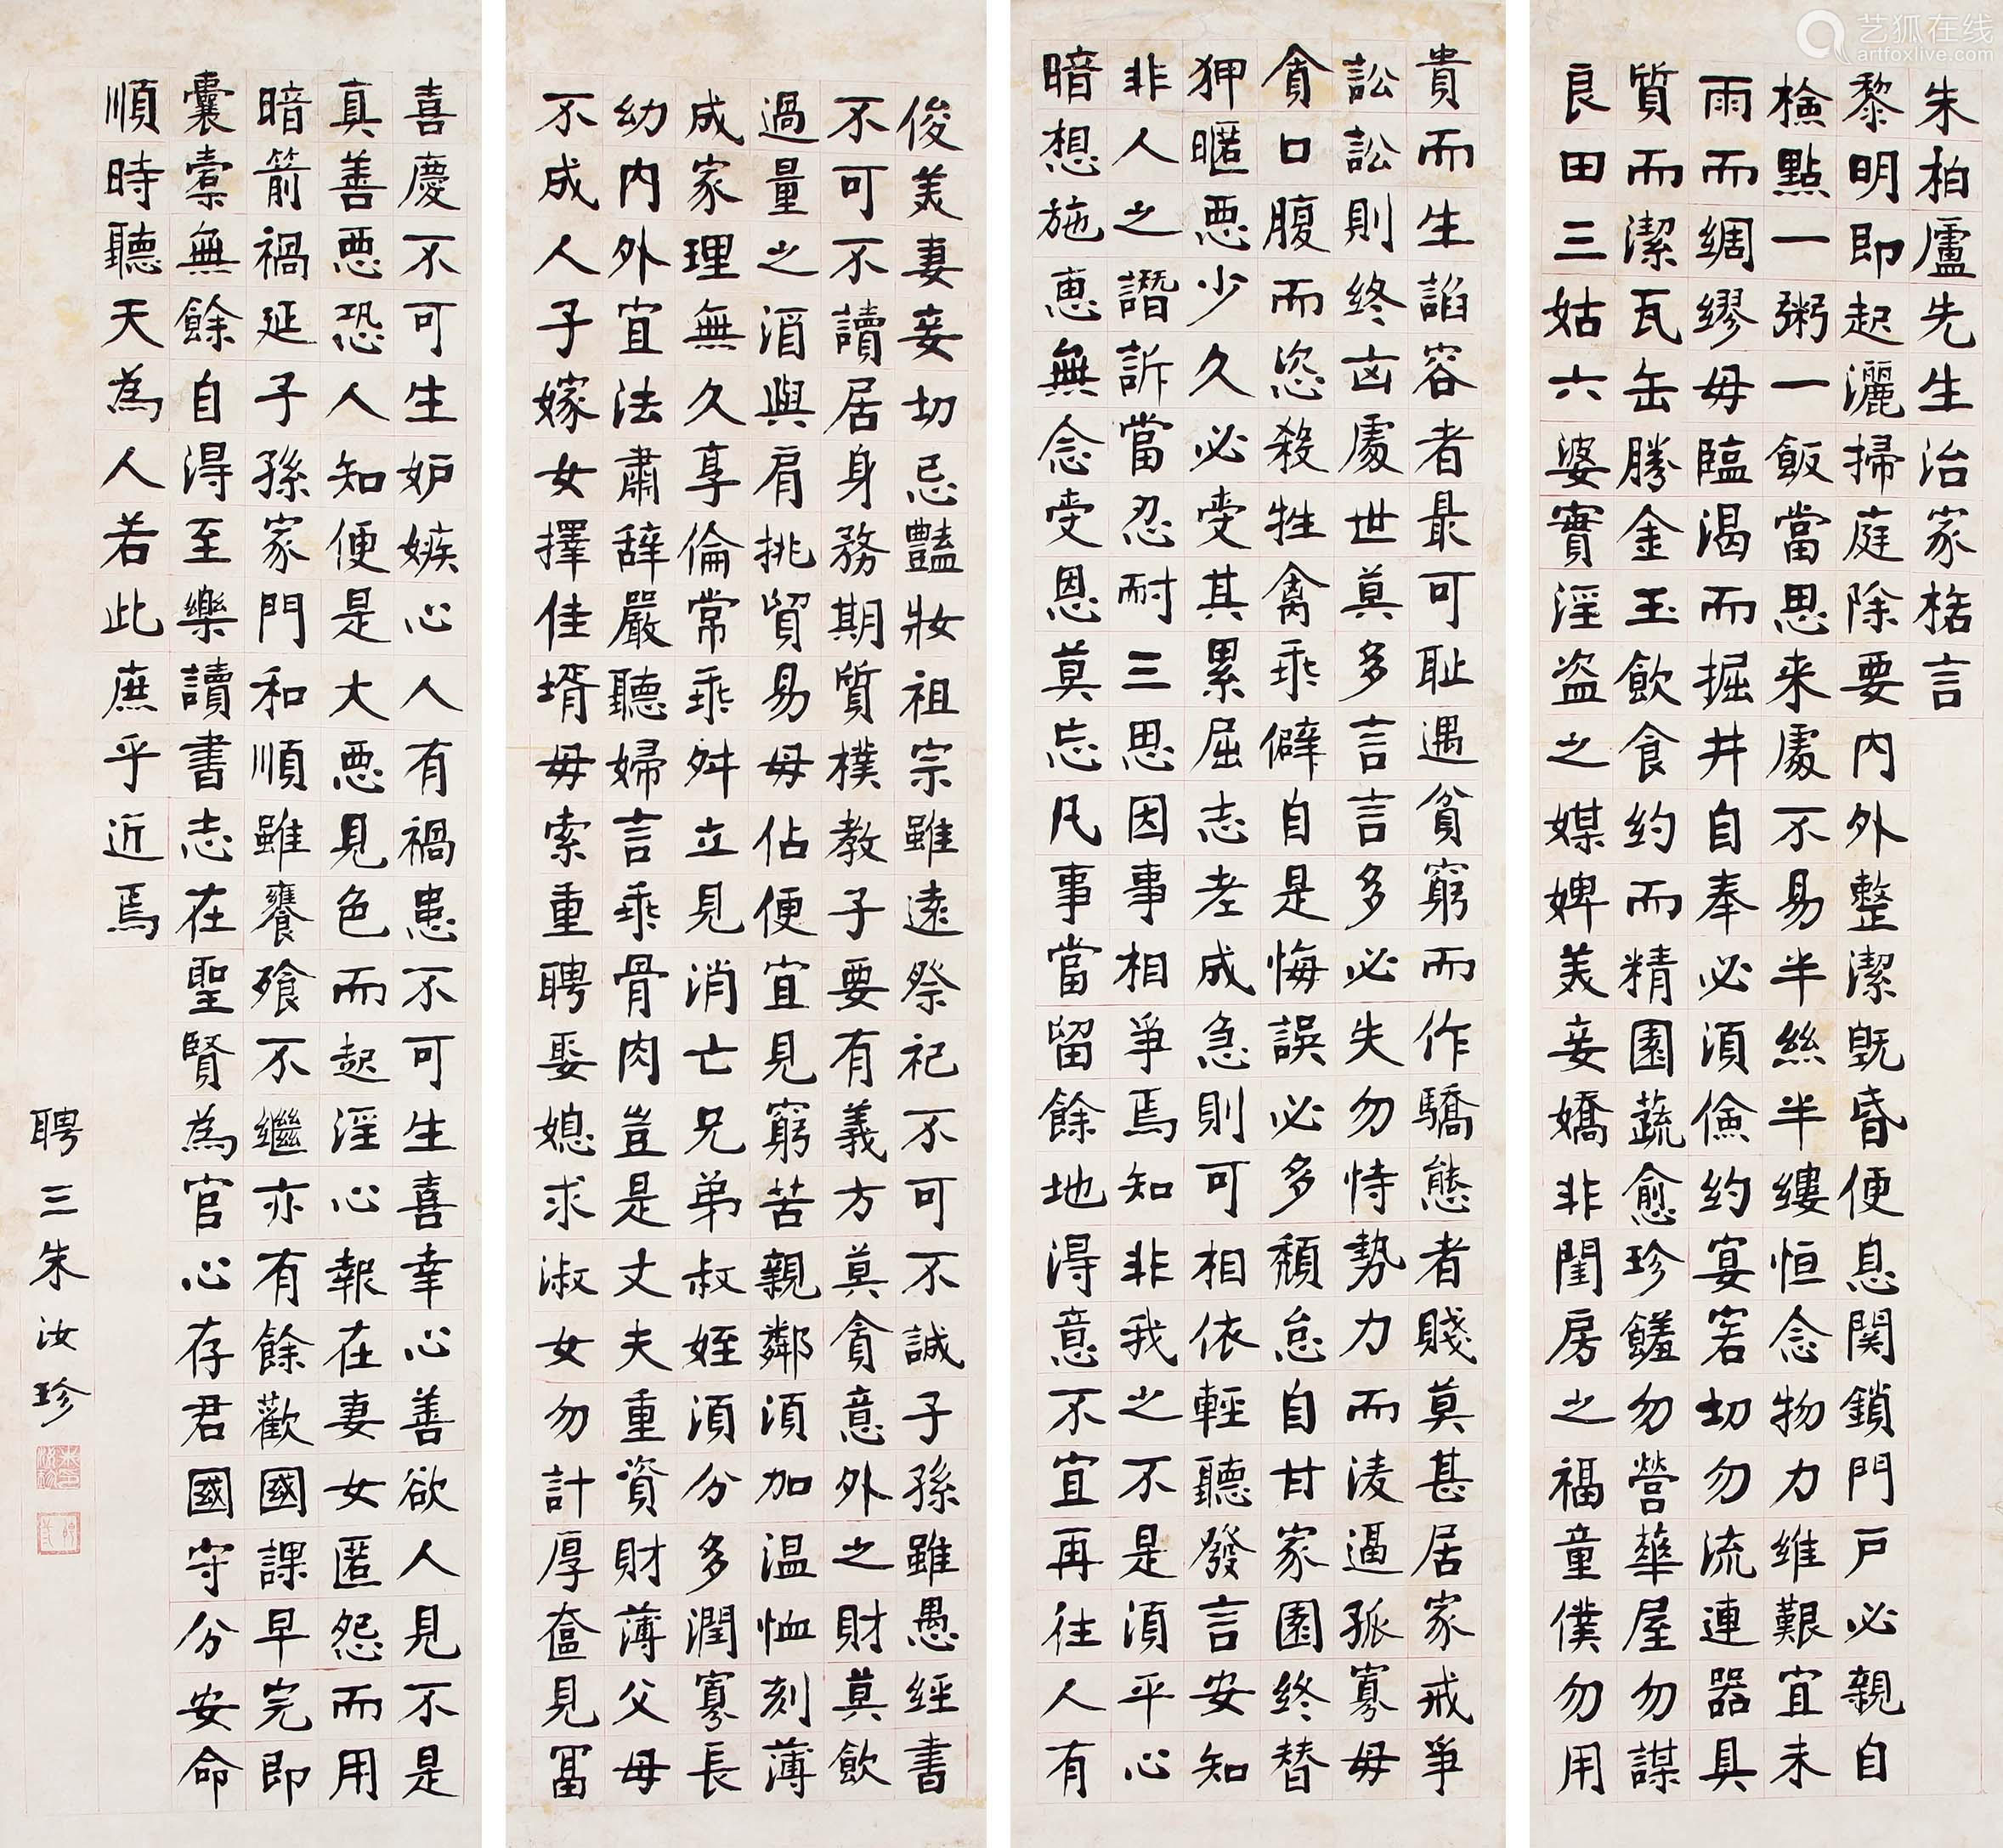 朱柏廬先生治家格言
黎明即起灑掃庭除要內外整潔既昏便息関鎖門戶必親自
檢點一粥一飯當思来處不易半絲半縷恒念物力維艱宜未
雨而綢繆毋臨渴而掘井自奉必須儉約宴客切勿流連器具
質而潔瓦缶勝金玉飲食約而精園蔬愈珍饈勿營華屋勿謀
良田三姑六婆實淫盗之媒婢美妾嬌非閨房之福童僕勿用
俊美妻妾切忌豔妝祖宗雖遠祭祀不可不誠子孫雖愚經書
不可不讀居身務期質樸教子要有義方莫貪意外之財莫飲
過量之酒與肩挑貿易毋佔便宜見窮苦親鄰須加温恤刻薄
成家理無久享倫常乖舛立見消亡兄弟叔姪須分多潤寡長
幼內外宜法肅辭嚴聽婦言乖骨肉豈是丈夫重資財薄父母
不成人子嫁女擇佳壻毋索重聘娶媳求淑女勿計厚奩見冨
貴而生諂容者最可恥遇貧窮而作驕態者賤莫甚居家戒爭
訟訟則終凶處世莫多言言多必失勿恃勢力而凌逼孤寡毋
貪口腹而恣殺牲禽乖僻自是悔誤必多頹怠自甘家園終替
狎暱惡少久必受其累屈志老成急則可相依輕聽發言安知
非人之譖訴當忍耐三思因事相爭焉知非我之不是須平心
暗想施惠無念受恩莫忘凡事當留餘地得意不宜再往人有
喜慶不可生妒嫉心人有禍患不可生喜幸心善欲人見不是
真善惡恐人知便是大惡見色而起淫心報在妻女匿怨而用
暗箭禍延子孫家門和順雖饔飧不繼亦有餘歡國課早完即
囊橐無餘自得至樂讀書志在聖賢為官心存君國守分安命
順時聽天為人若此庶乎近焉
聘三朱汝珍
艺狐在线
artfoxlive.com